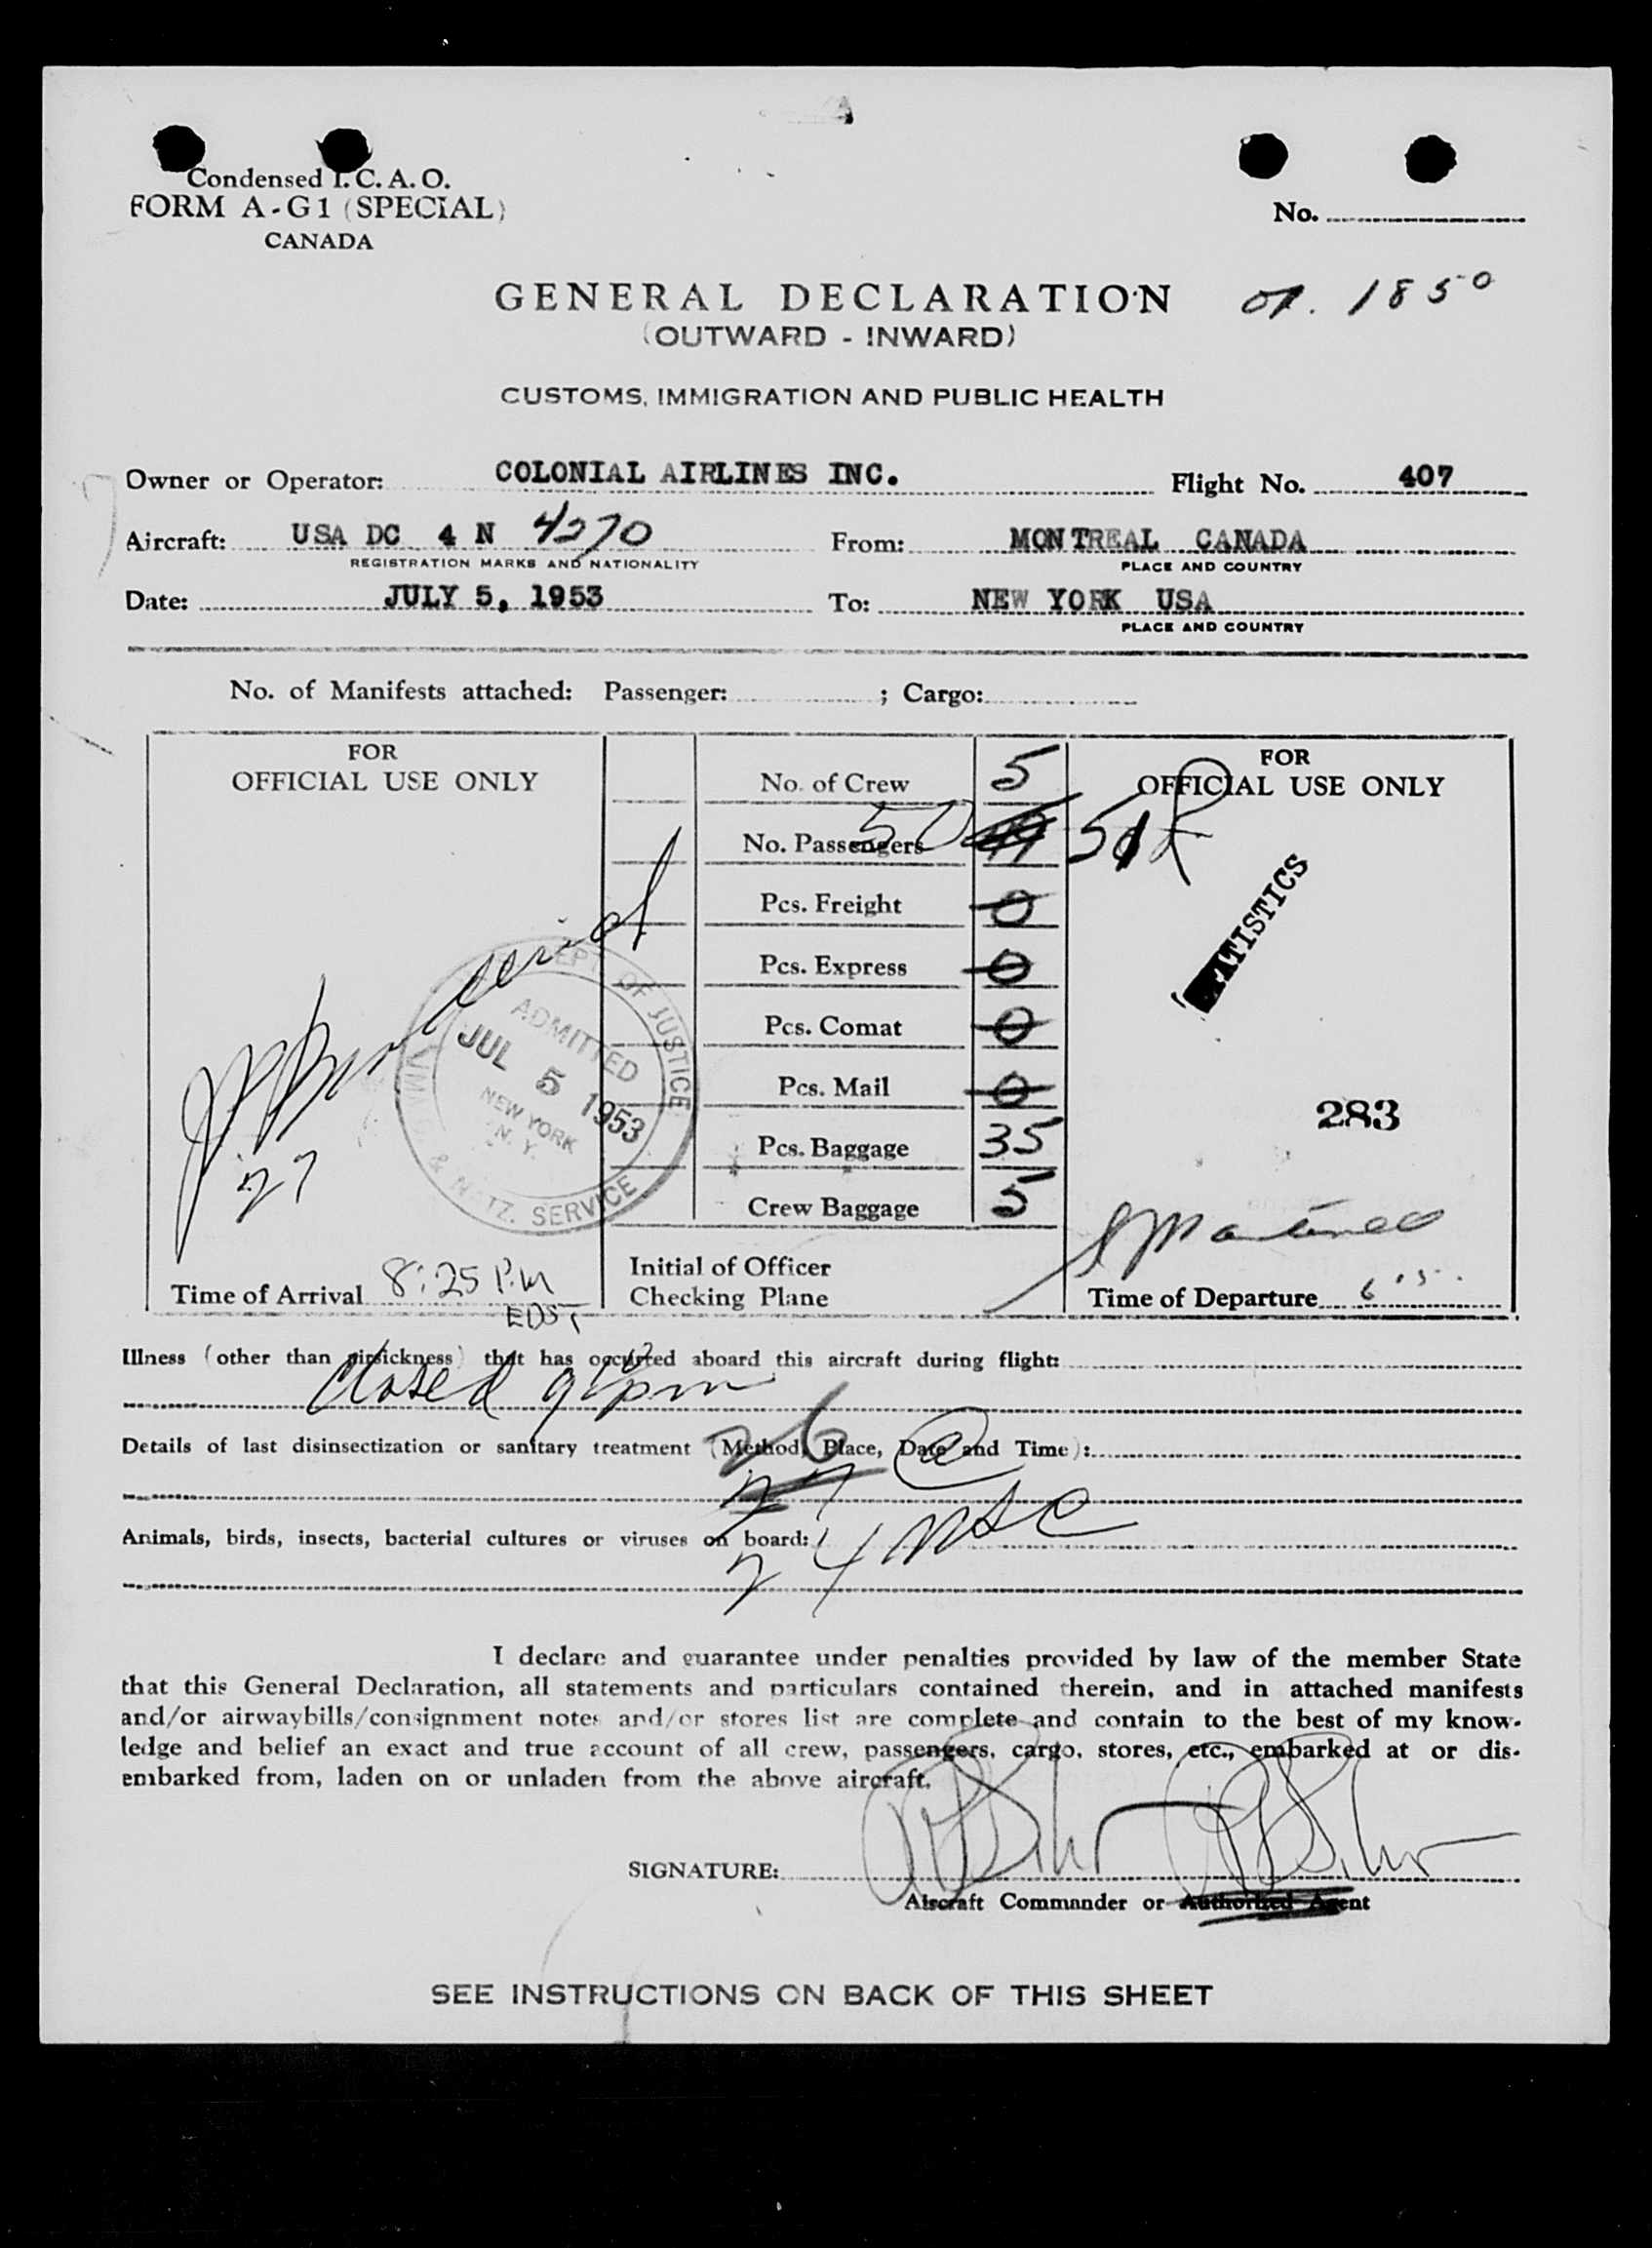 Condensed I. C. A. O.
FORM A-G1 (SPECIAL)
CANADA
No.
GENERAL DECLARATION
(OUTWARD - INWARD)
1850
CUSTOMS, IMMIGRATION AND PUBLIC HEALTH
Owner or Operator: COLONIAL AIRLINES INC. Flight No. 407
Aircraft: USA DC 4 N 4270 From: MONTREAL CANADA
REGISTRATION MARKS AND NATIONALITY PLACE AND COUNTRY
Date: JULY 5, 1953 To: NEW YORK USA
PLACE AND COUNTRY
No. of Manifests attached: Passenger: ; Cargo:
FOR
OFFICIAL USE ONLY
27
DEPT OF JUSTICE
ADMITTED
JUL 5 1953
NEW YORK
N. Y.
IMM & NATZ. SERVICE
Time of Arrival 8:25 P.M
EDST
No. of Crew 5
No. Passengers 50 49 51
Pcs. Freight 0
Pcs. Express 0
Pcs. Comat 0
Pcs. Mail 0
Pcs. Baggage 35
Crew Baggage 5
Initial of Officer
Checking Plane
FOR
OFFICIAL USE ONLY
STATISTICS
283
Time of Departure
Illness (other than airsickness) that has occurred aboard this aircraft during flight:
Closed
Details of last disinsectization or sanitary treatment (Method, Place, Date and Time):
26
27
Animals, birds, insects, bacterial cultures or viruses on board:
24
I declare and guarantee under penalties provided by law of the member State
that this General Declaration, all statements and particulars contained therein, and in attached manifests
and/or airwaybills/consignment notes and/or stores list are complete and contain to the best of my know-
ledge and belief an exact and true account of all crew, passengers, cargo, stores, etc., embarked at or dis-
embarked from, laden on or unladen from the above aircraft.
SIGNATURE:
Aircraft Commander or Authorized Agent
SEE INSTRUCTIONS ON BACK OF THIS SHEET